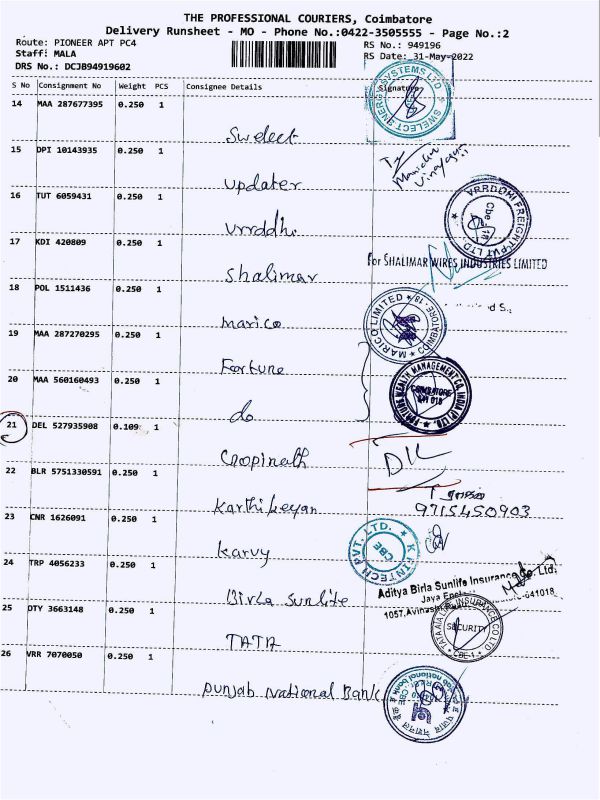 THE PROFESSIONAL COURIERS, Coimbatore
Delivery Runsheet - MO - Phone No.:0422-3505555 - Page No.:2
Route: PIONEER APT PC4
RS No.: 949196
Staff: MALA
RS Date: 31-May-2022
DRS No.: DCJB94919602
S No Consignment No Weight PCS Consignee Details Signature
14 MAA 287677395 0.250 1
Swelect
SWELECT ENERGY SYSTEMS LTD
15 DPI 10143935 0.250 1
updater
16 TUT 6059431 0.250 1
Vrrddhi
VRRDDHI FREIGHT PVT LTD
Cbe - 18
17 KDI 420809 0.250 1
Shalimar
For SHALIMAR WIRES INDUSTRIES LIMITED
18 POL 1511436 0.250 1
Marico
MARICO LIMITED
19 MAA 287270295 0.250 1
Fortune
20 MAA 560160493 0.250 1
do
FORTUNE WEALTH MANAGEMENT CO. INDIA (P) LTD.
COIMBATORE
641 018
21 DEL 527935908 0.109 1
Gopinath
DIL
22 BLR 5751330591 0.250 1
Karthikeyan
9715450903
23 CNR 1626091 0.250 1
Karvy
K FINTECH PVT. LTD.
CBE
24 TRP 4056233 0.250 1
Birla Sunlife
Aditya Birla Sunlife Insurance Co. Ltd.
1057, -641018
25 OTY 3663148 0.250 1
TATA
TATA AIA LIFE INSURANCE CO LTD
SECURITY
CBE-1
26 VRR 7070050 0.250 1
Punjab National Bank
punjab national bank